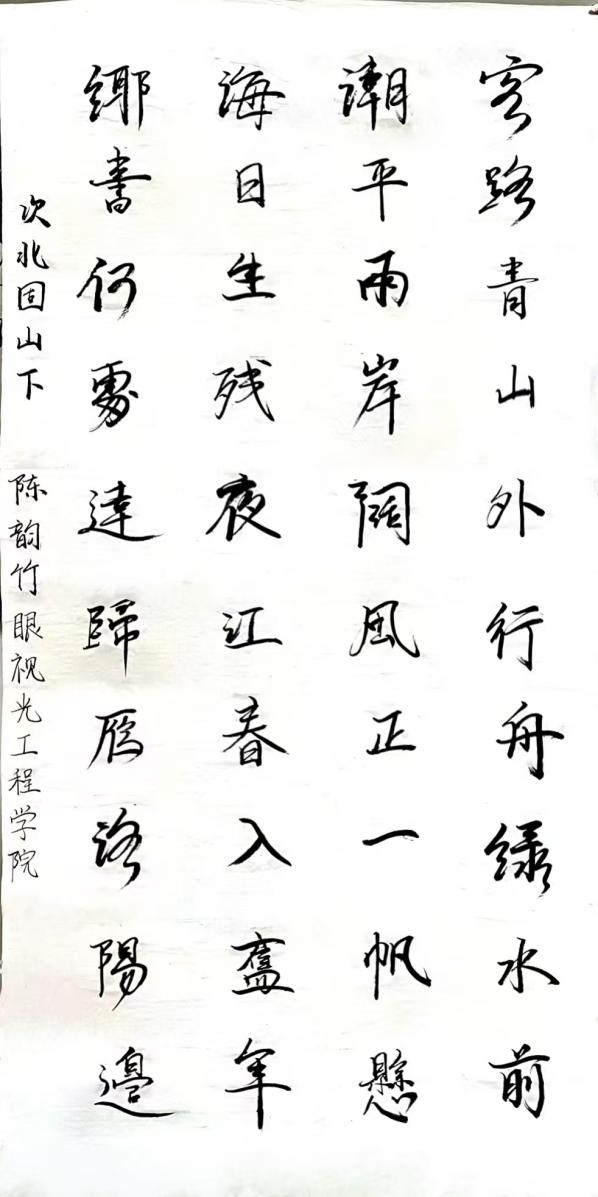 客路青山外行舟绿水前
潮平兩岸闊風正一帆懸
海日生残夜江春入舊年
鄉書何處達歸雁洛陽邊
次北固山下 陈韵竹眼视光工程学院